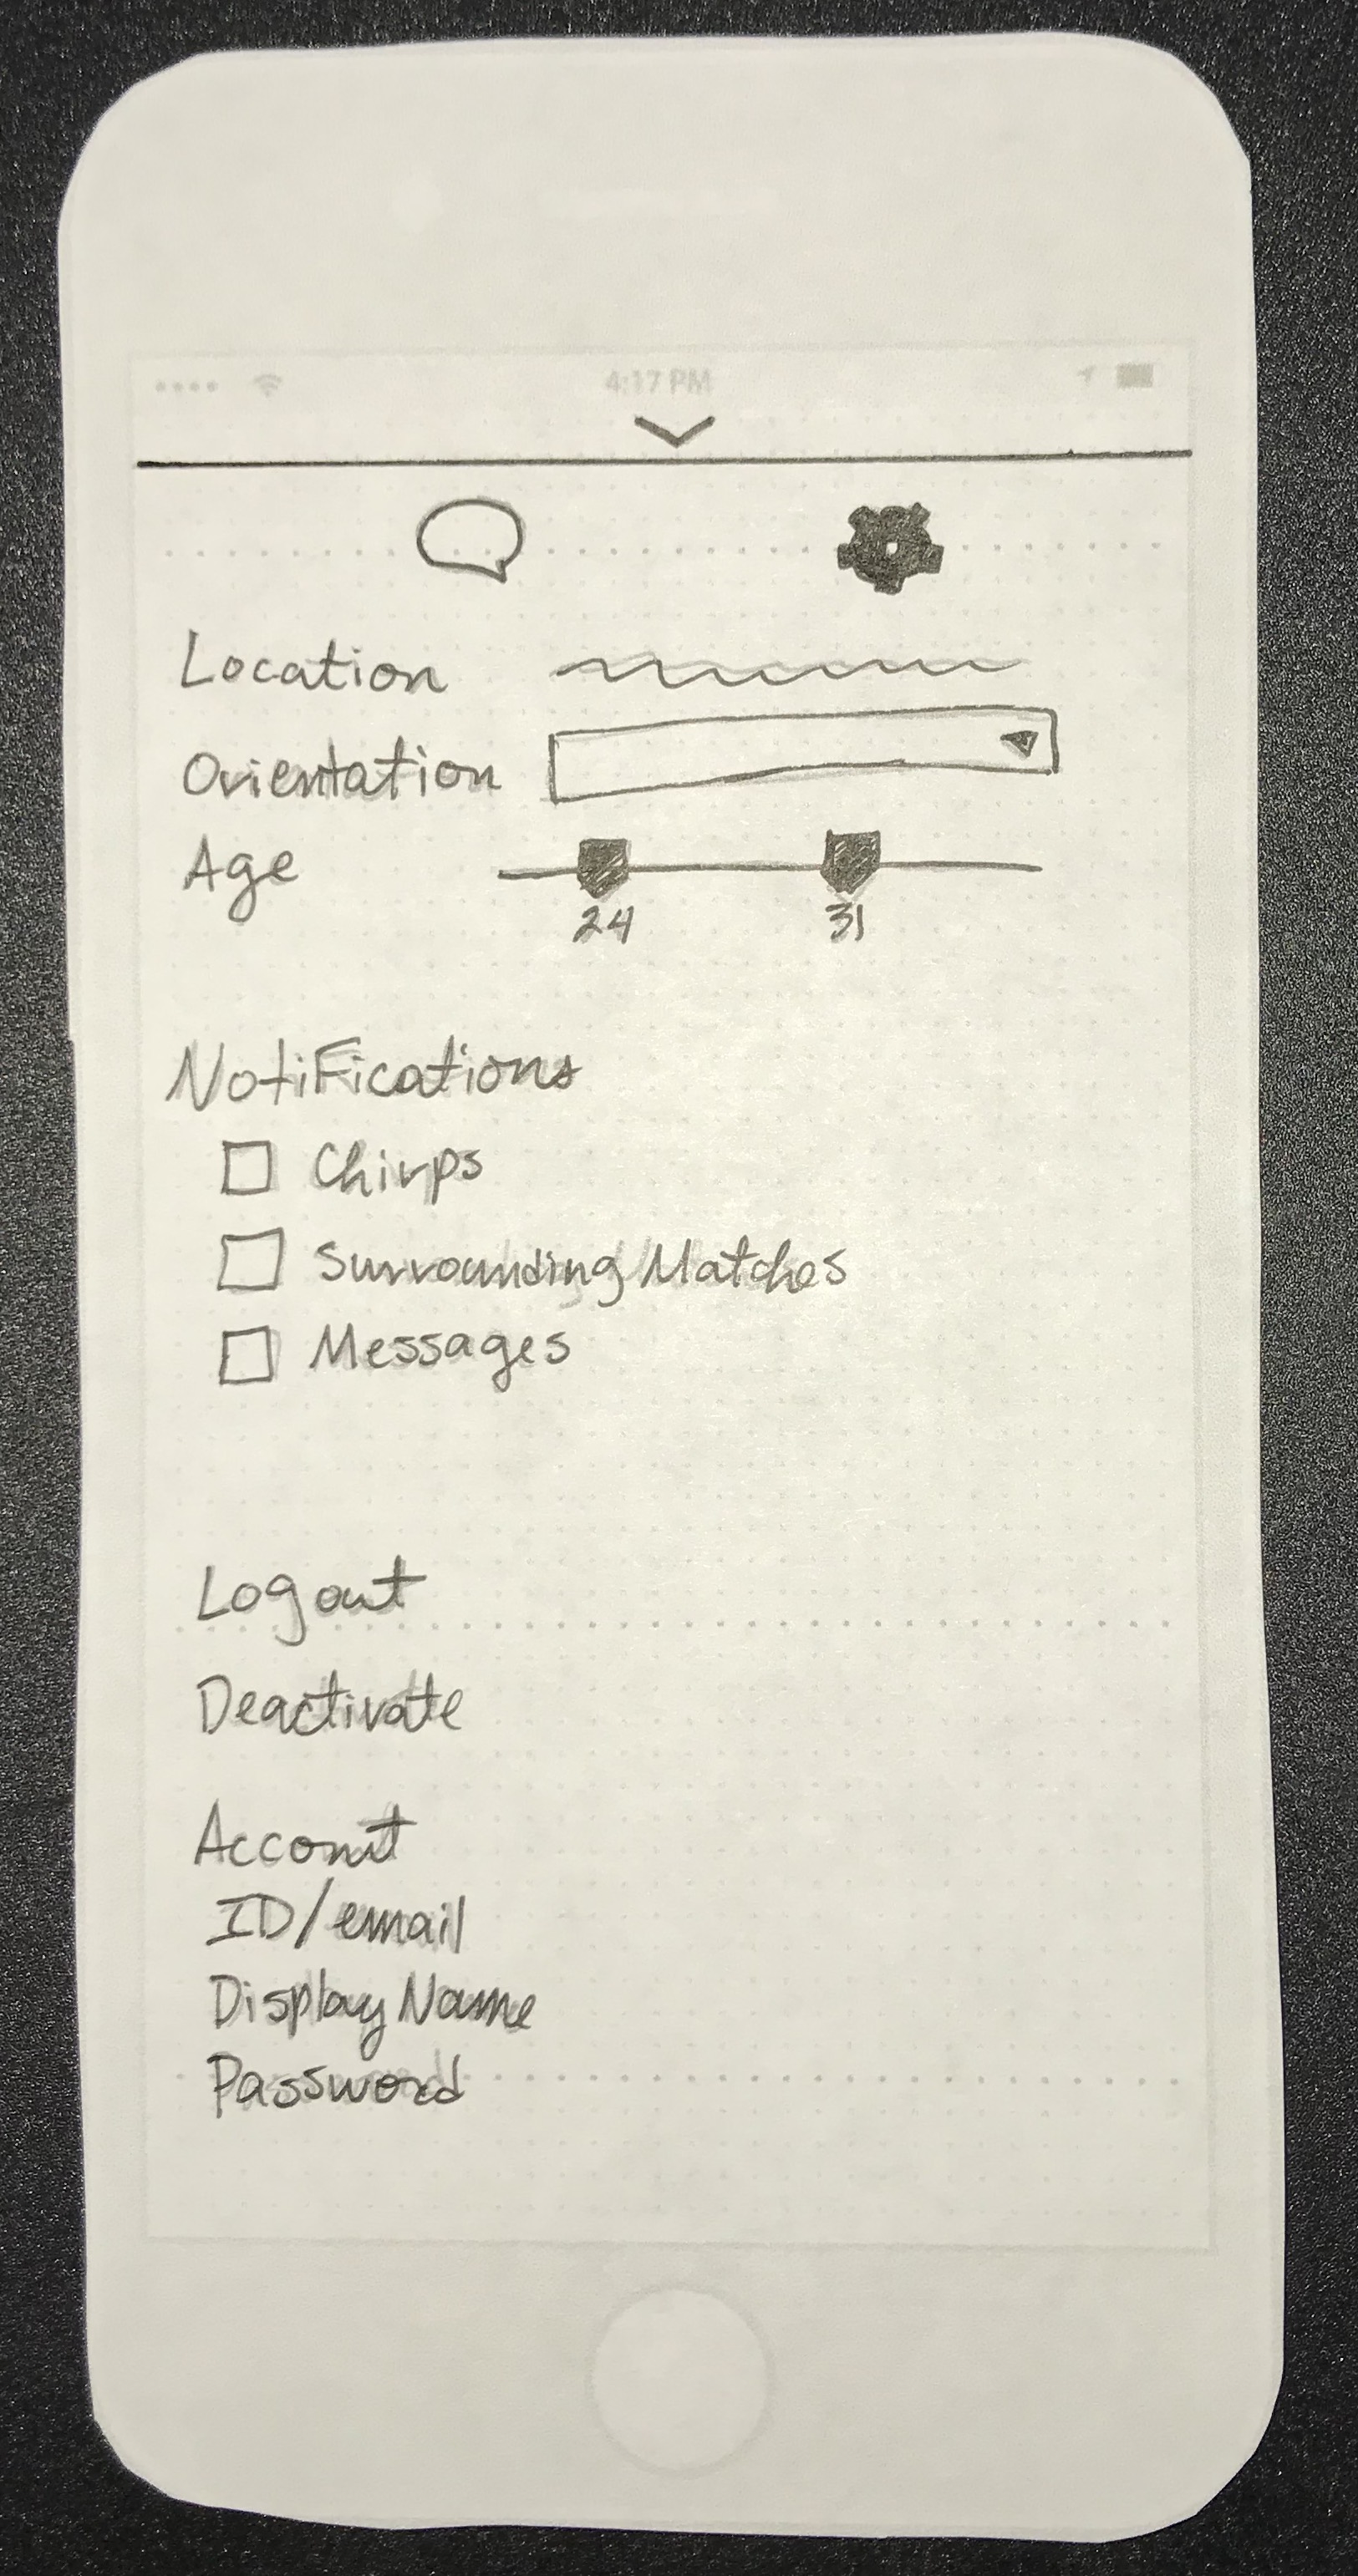 4:17 PM
Location
Orientation
Age
24 31
Notifications
Chirps
Surrounding Matches
Messages
Logout
Deactivate
Account
ID/email
Display Name
Password